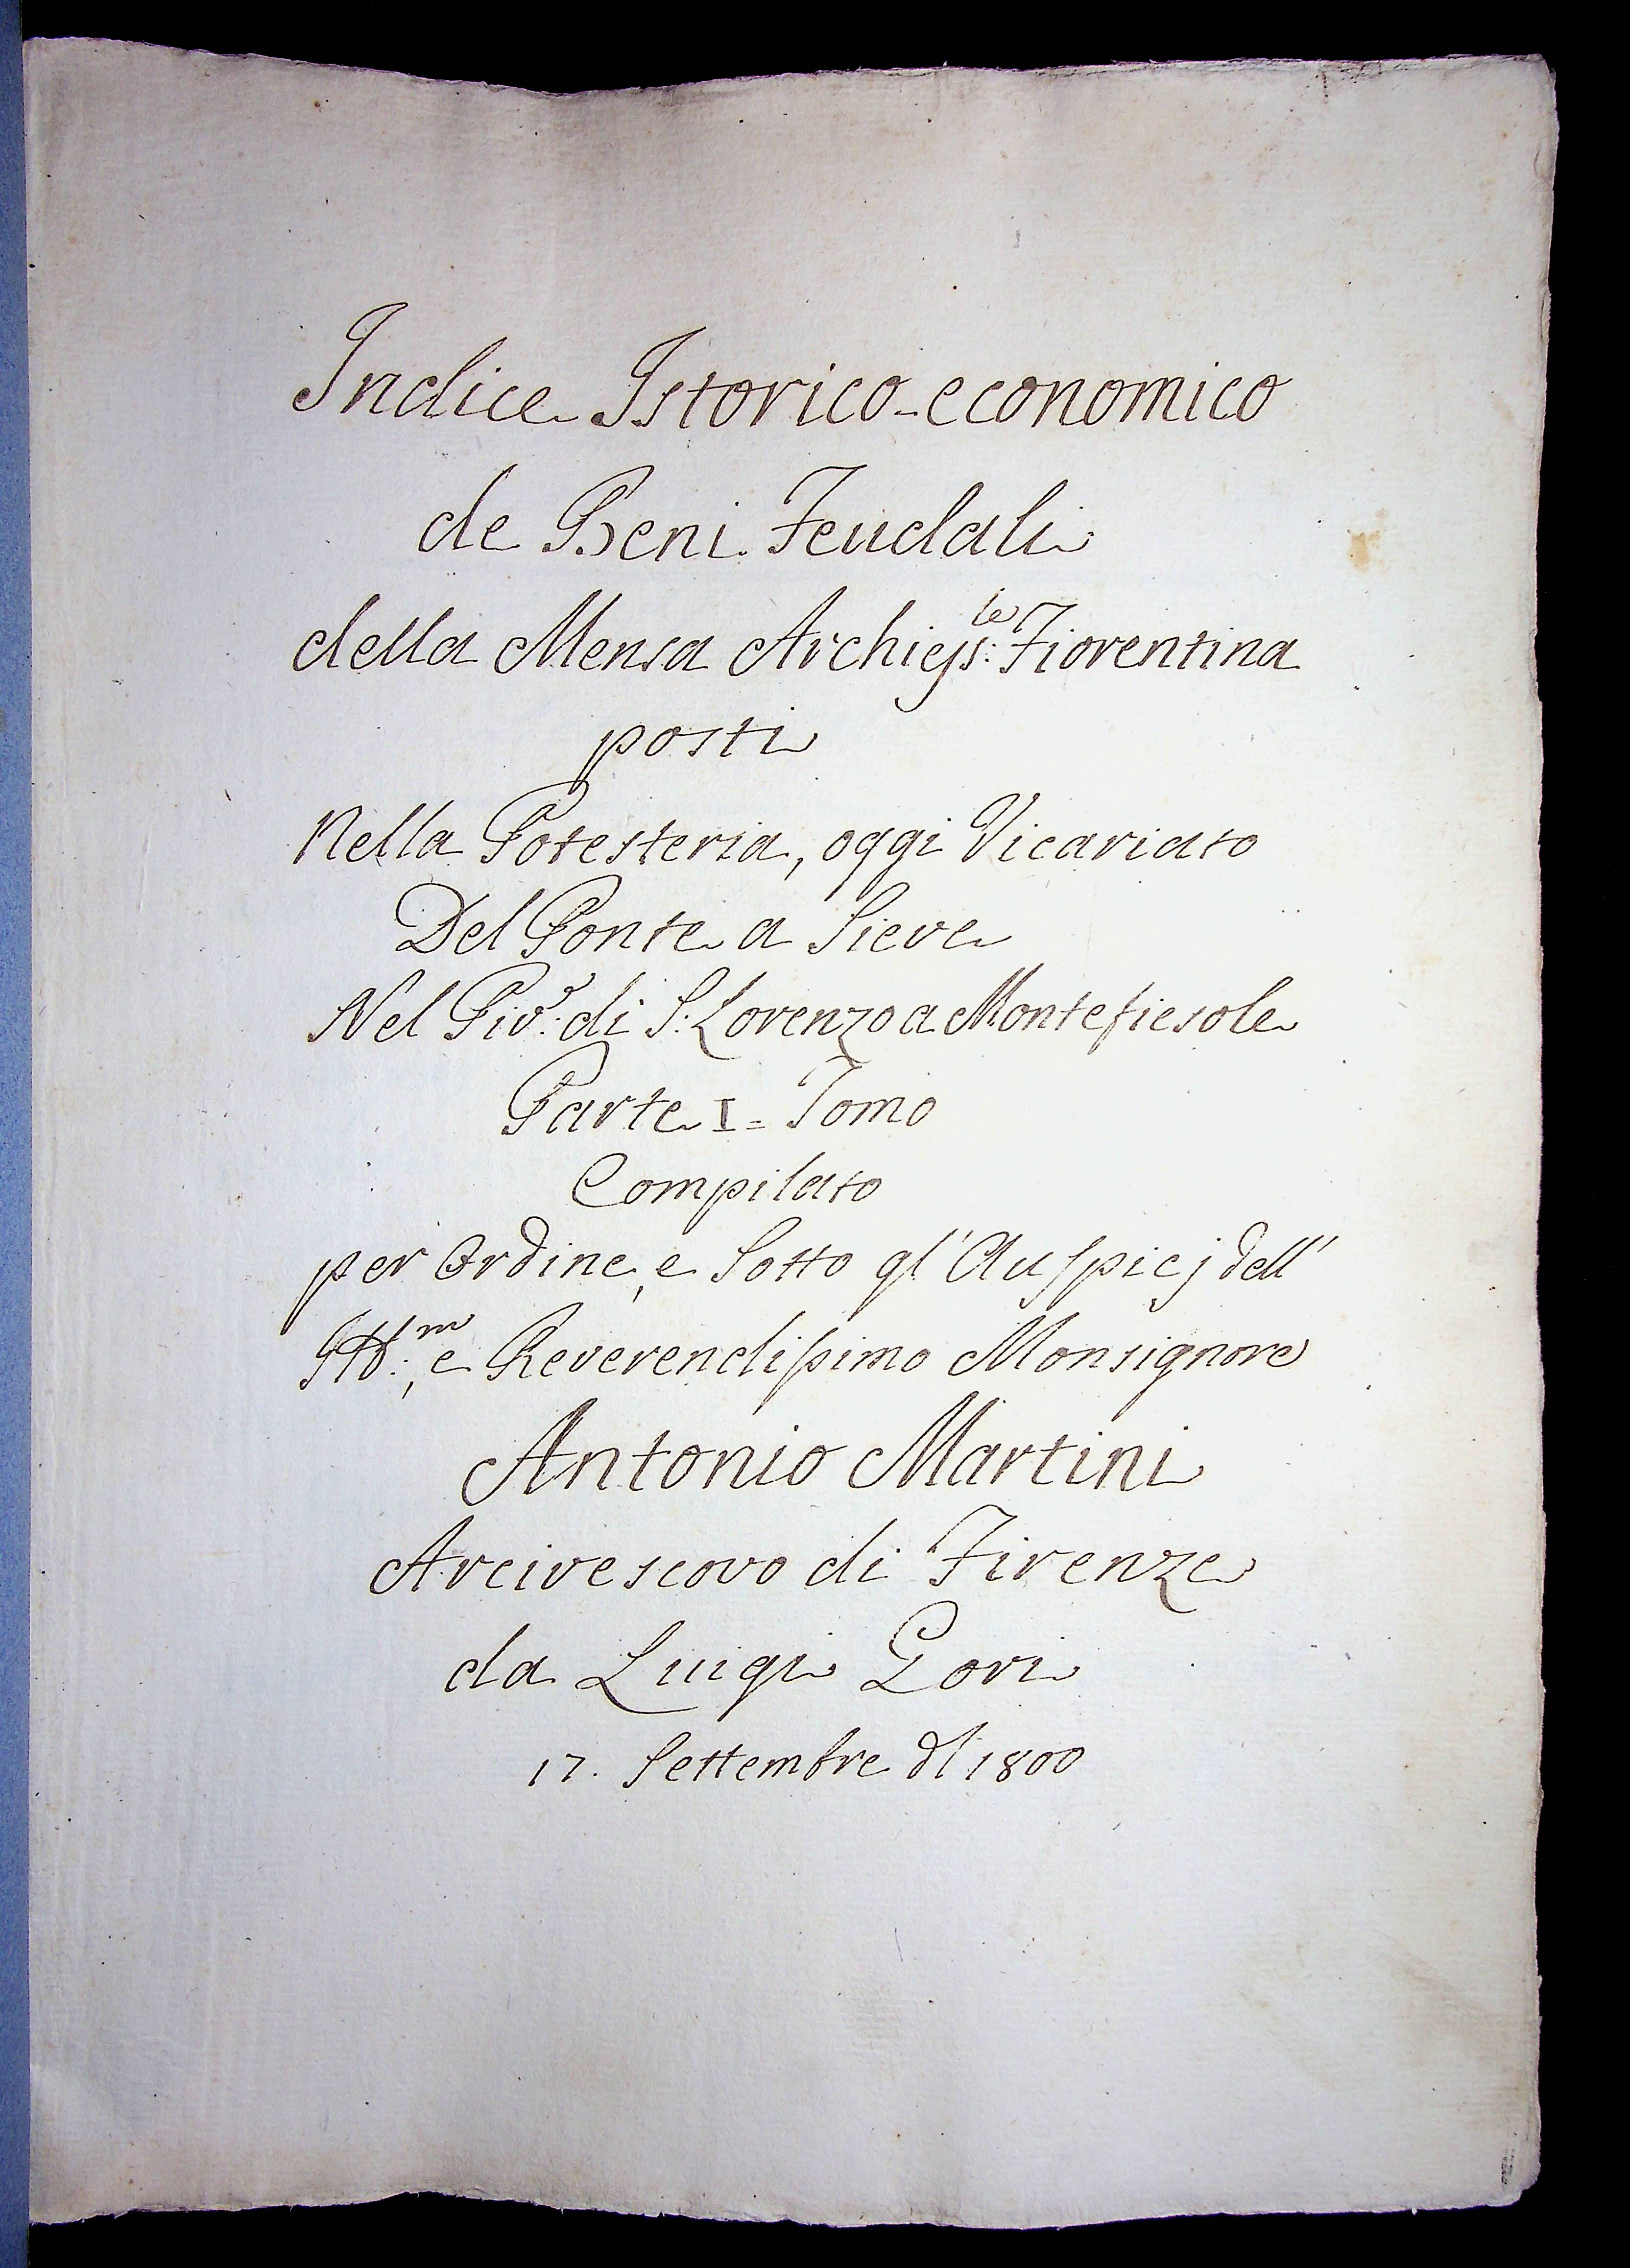 Indice Istorico-economico
de Beni Feudali
della Mensa Archieps:le Fiorentina
posti
Nella Potesteria, oggi Vicariato
Del Ponte a Sieve
Nel Piv:e di S: Lorenzo a Montefiesole
Parte I= Tomo
Compilato
per Ordine, e Sotto gl' Auspicj dell'
Ill:m, e Reverendissimo Monsignore
Antonio Martini
Arcivescovo di Firenze
da Luigi Gori
17. Settembre dl 1800